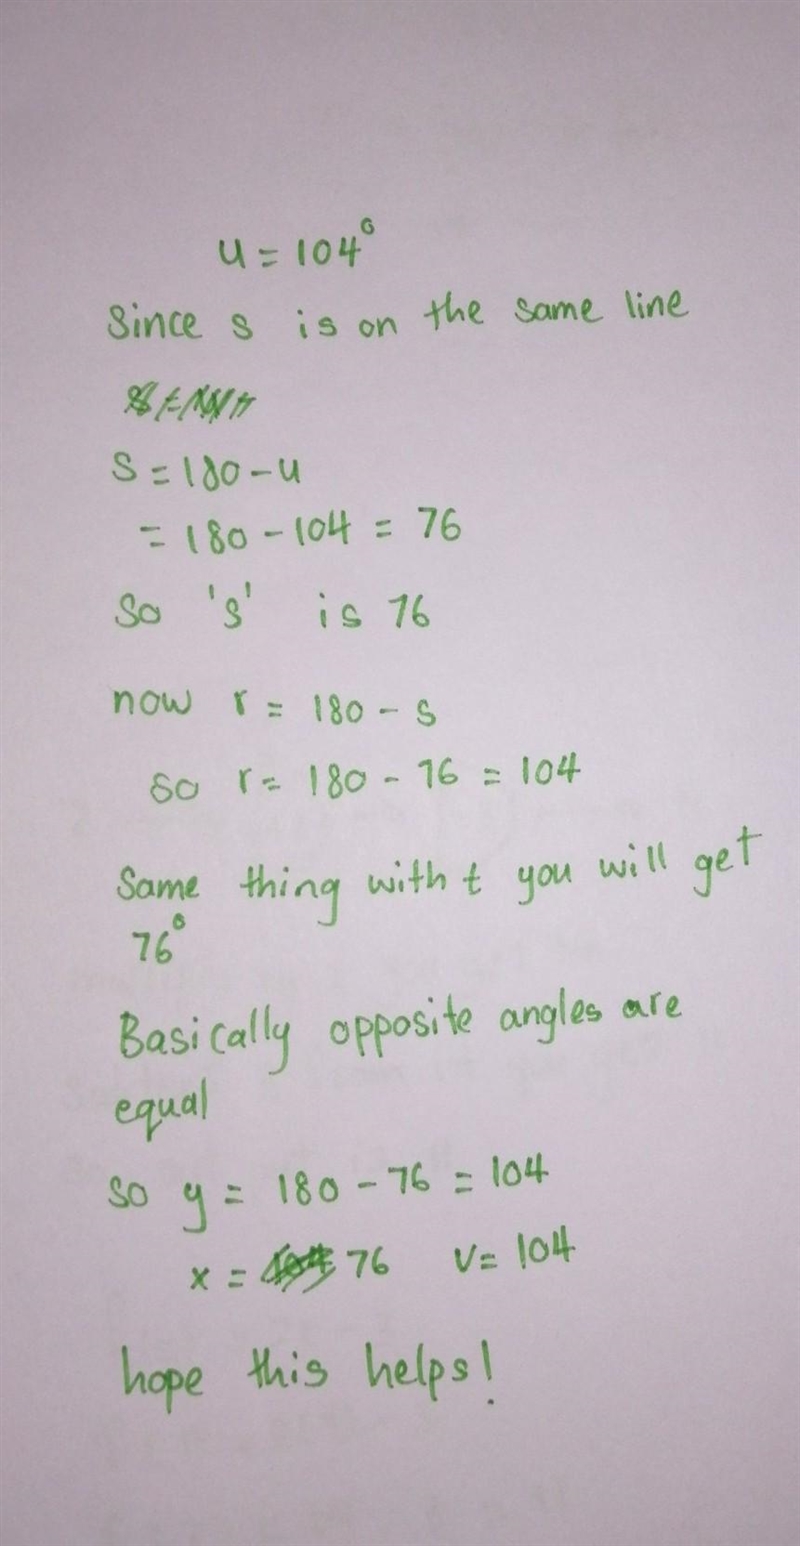 u = 104°
Since s is on the same line
s = 180 - u
= 180 - 104 = 76
so 's' is 76
now r = 180 - s
so r = 180 - 76 = 104
Same thing with t you will get
76°
Basically opposite angles are
equal
so y = 180 - 76 = 104
x = 76 v = 104
hope this helps!